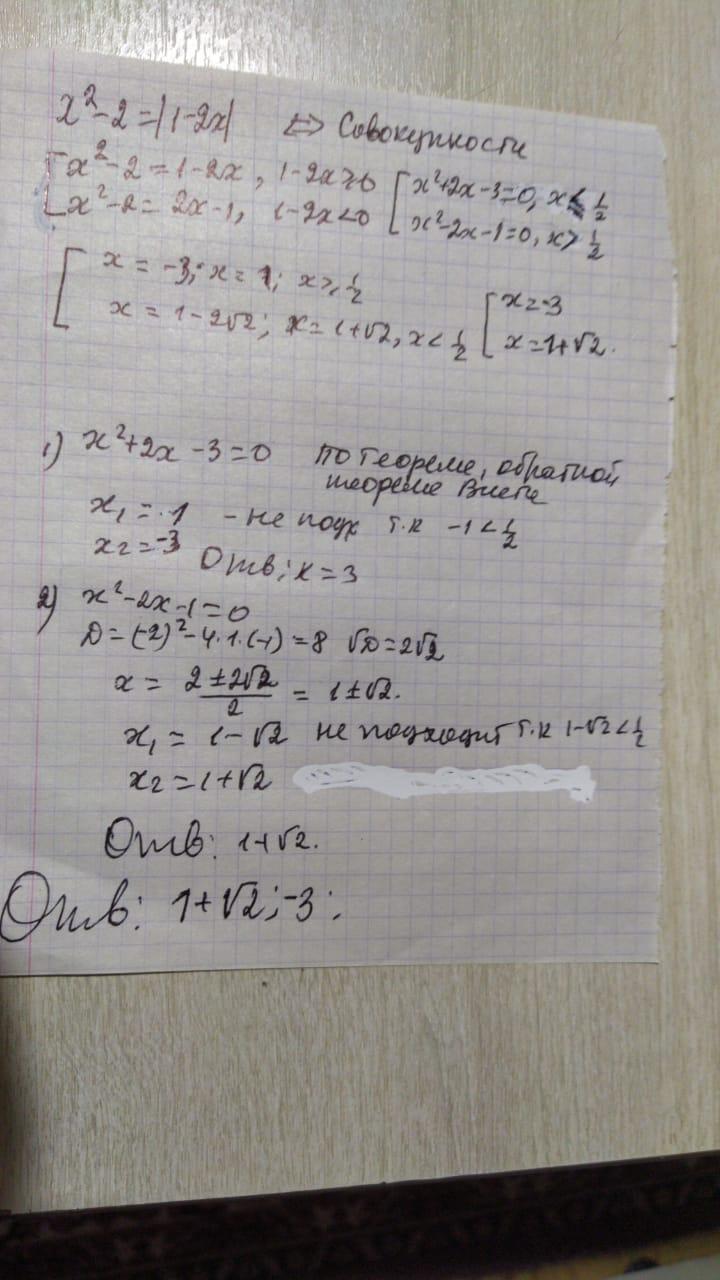 x²-2=|1-2x| ⇔ Совокупности
[ x²-2=1-2x, 1-2x≥0 [ x²+2x-3=0, x≤ 1/2
x²-2=2x-1, 1-2x<0 x²-2x-1=0, x> 1/2
[ x=-3; x=1; x≥ 1/2 [ x=-3
x=1-2√2; x=1+√2, x< 1/2 x=1+√2.
1) x²+2x-3=0 по теореме, обратной
теореме Виета
x₁=1 - не подх т.к -1< 1/2
x₂=-3 Отв: x=3
2) x²-2x-1=0
D=(-2)²-4·1·(-1)=8 √D=2√2
x= (2±2√2)/2 = 1±√2.
x₁=1-√2 не подходит т.к 1-√2< 1/2
x₂=1+√2
Отв: 1+√2.
Отв: 1+√2; -3;